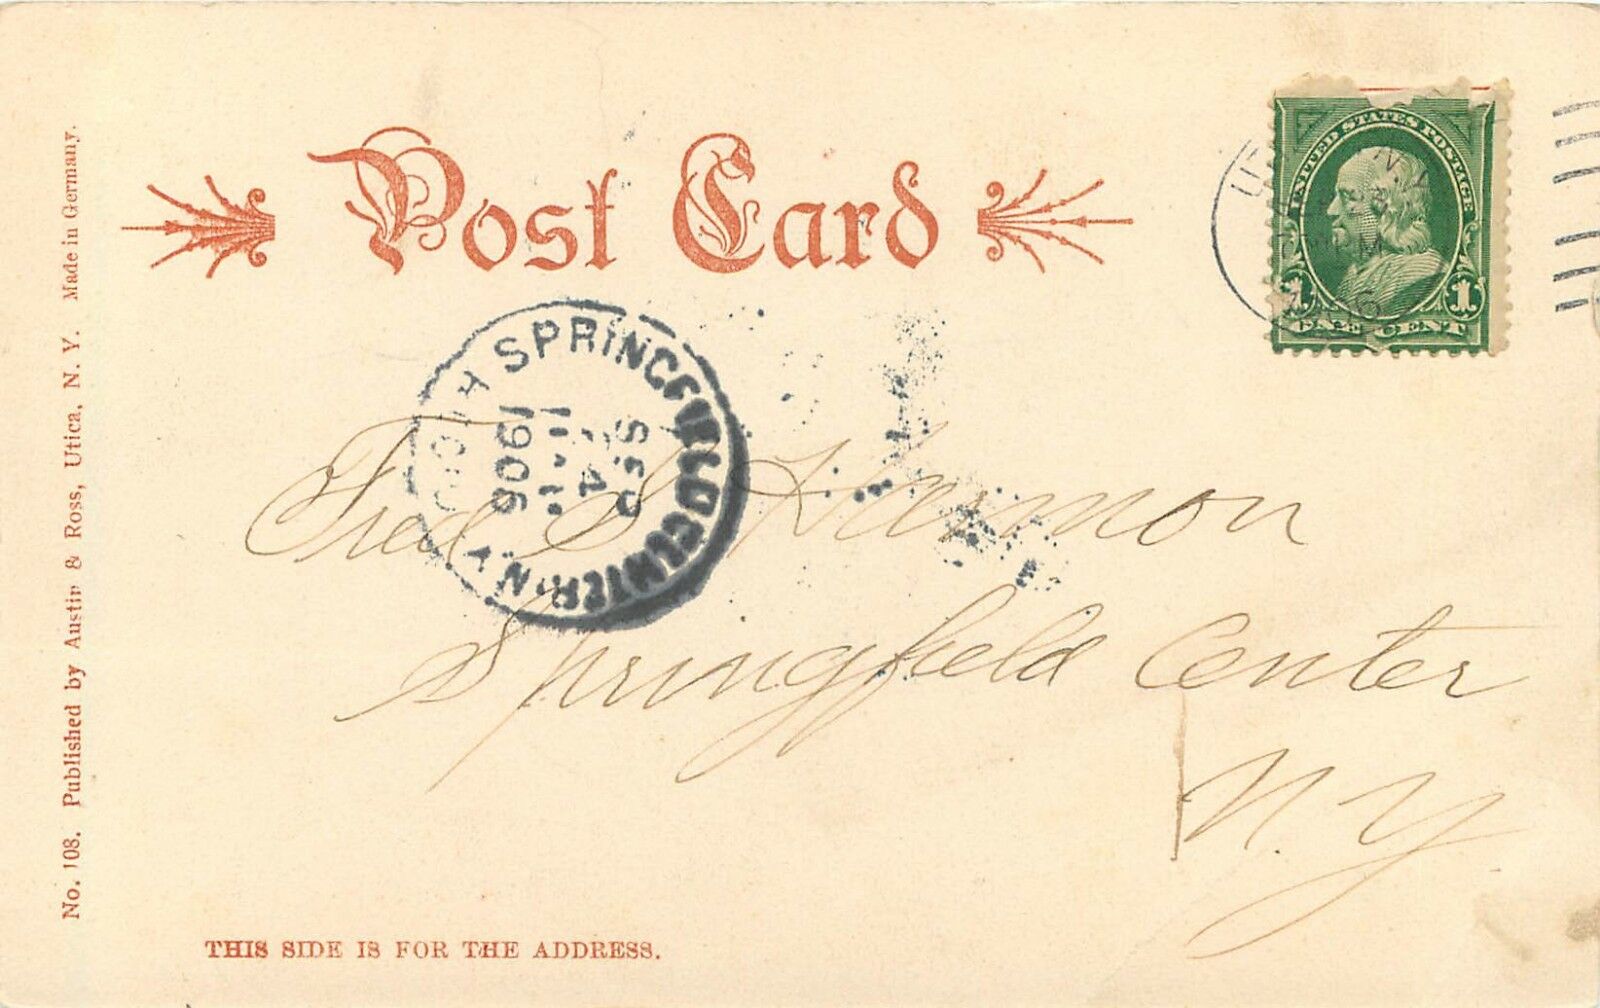 Post Card
UNITED STATES POSTAGE
1 1
ONE CENT
N.Y.
PM
SPRINGFIELD CENTER N Y
SEP
4
11 AM
1906
Fred S Harmon
Springfield Center
N. Y.
No. 108. Published by Austin & Ross, Utica, N. Y. Made in Germany.
THIS SIDE IS FOR THE ADDRESS.